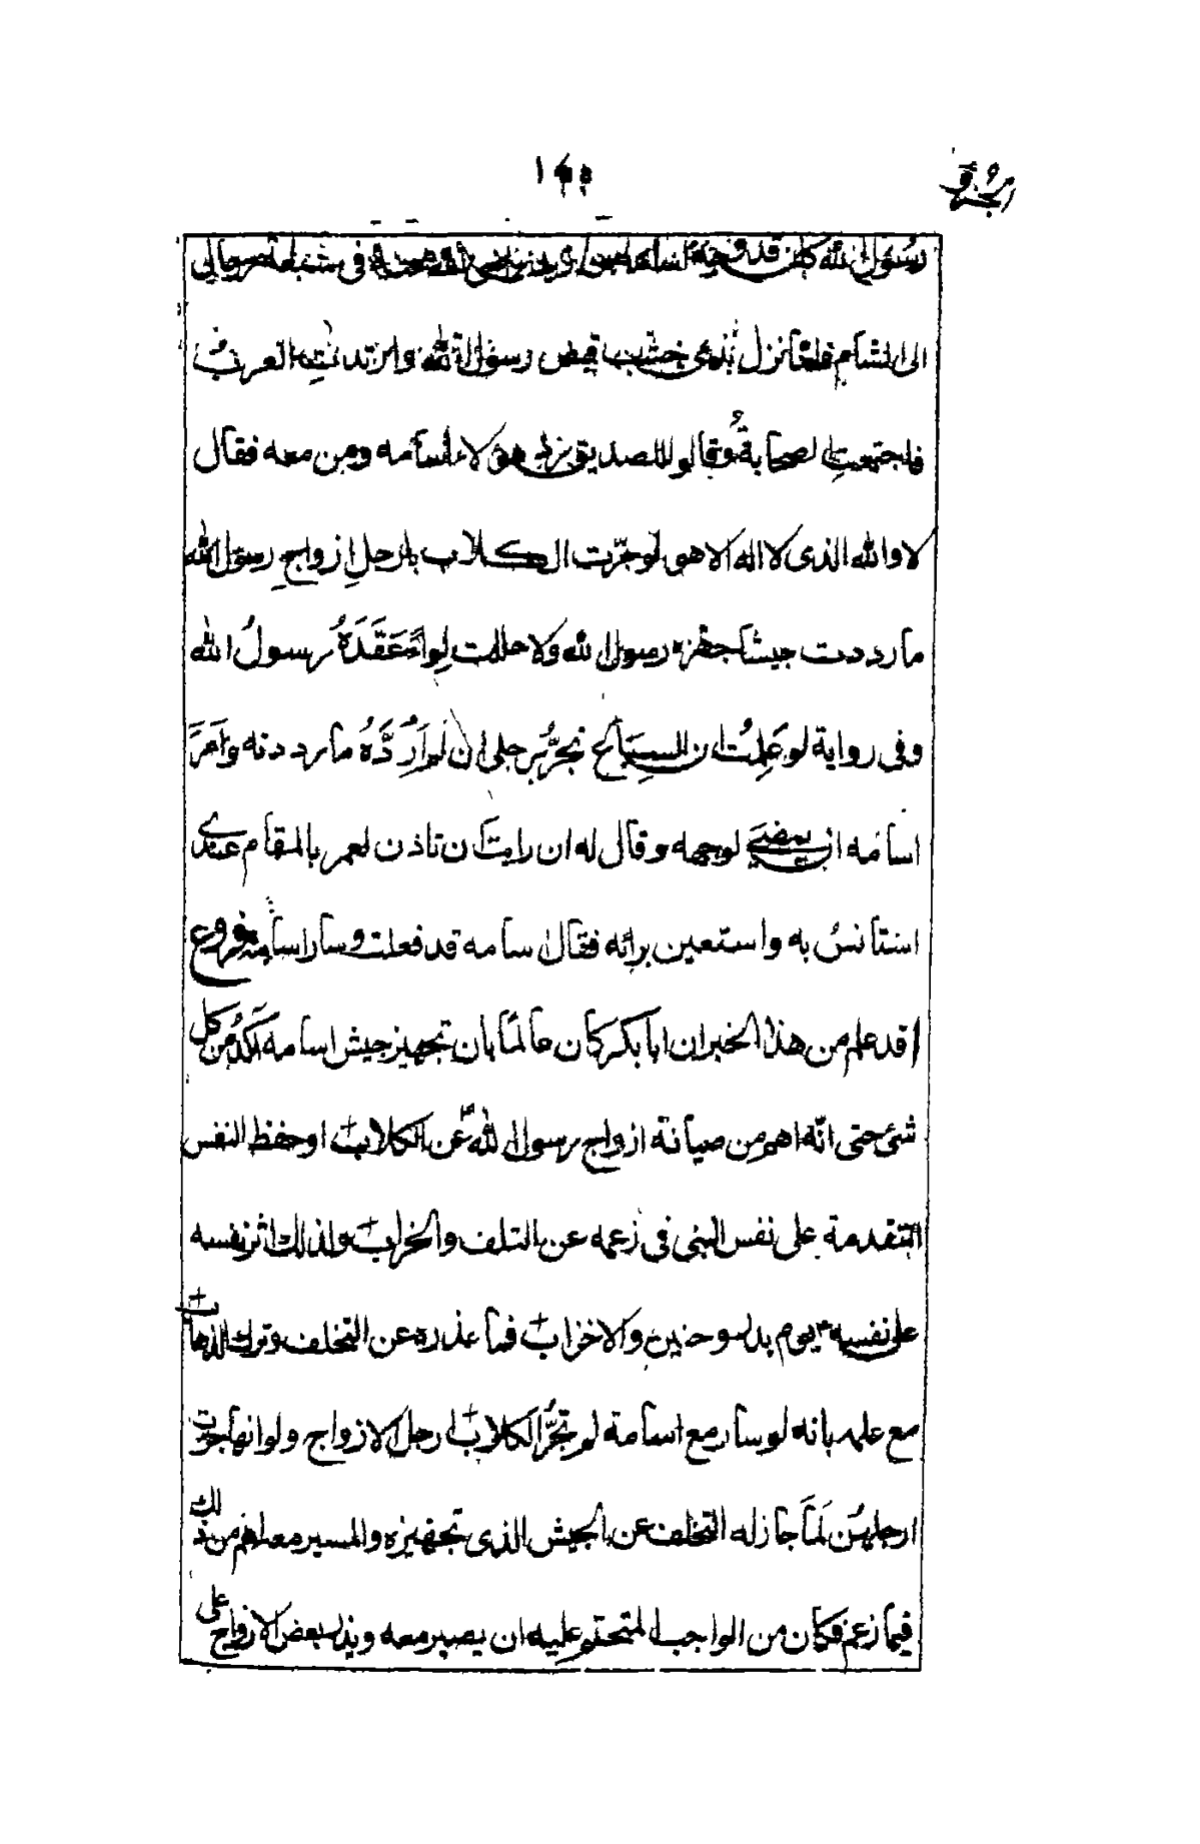 رسول الله كان قد وجه اسامه بن زيد في سبعمائة رجال
الى الشام فلما نزل بذى خشب قبض رسول الله وارتدت العرب
فاجتمعت الصحابة وقالوا للصديق برد هؤلاء اسامه ومن معه فقال
لا والله الذى لا اله الا هو لو جرّت الكلاب بارجلِ ازواجِ رسول الله
ما رددت جيشا جهزه رسول الله ولا حللت لِواءً عَقَدَهُ رسولُ الله
وفى رواية لو عَلِمْتُ ان السباع تجرُّ برجلى ان لم اَرُدَّهُ ما رددته واَمَرَ
اسامه ان يمضى لوجهه وقال له ان رايت ان تاذن لعمر بالمقام عندى
استانسُ به واستعين برائه فقال اسامه قد فعلت وسار اسامه
قد علم من هذا الخبر ان ابا بكر كان عالمًا بان تجهيز جيش اسامه آكدُ من كل
شئ حتى انّه اهم من صيانة ازواج رسول الله عن الكلاب او حفظ النفس
المتقدمة على نفس النبى فى زعمه عن التلف والخراب ولذلك اثر نفسه
على نفسه يوم بدر وحنين والاحزاب فما عذره عن التخلف وترك الذهاب
مع علمه بانه لو سار مع اسامة لم تجرُّ الكلاب ارجل الازواج ولو انها جرت
ارجلهن لَمَا جاز له التخلف عن الجيش الذى تجهيزه والمسير معه اهم من ذلك
فيما زعم فكان من الواجب المتحتم عليه ان يصير معه وبذر بعض الازواج على